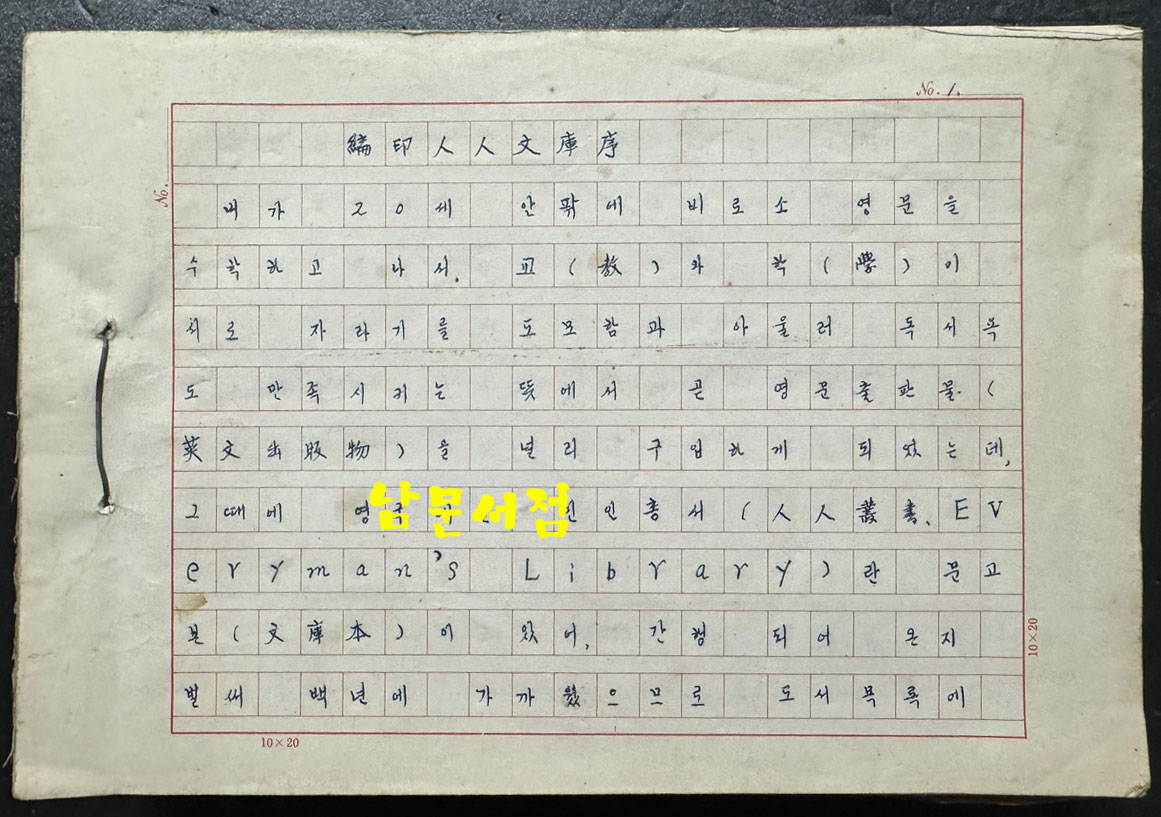 No. 1.
編印人人文庫序
No.
내가 20세 안팎에 비로소 영문을
수학하고 나서, 교(教)와 학(學)이
서로 자라기를 도모함과 아울러 독서욕
도 만족시키는 뜻에서 곧 영문출판물(
英文出版物)을 널리 구입하게 되었는데,
그때에 인인총서(人人叢書, EV
eryman's Library)란 문고
남문서점
본(文庫本)이 있어, 간행 되어 온지
벌써 백년에 가까웠으므로 도서목록에
10×20
10×20